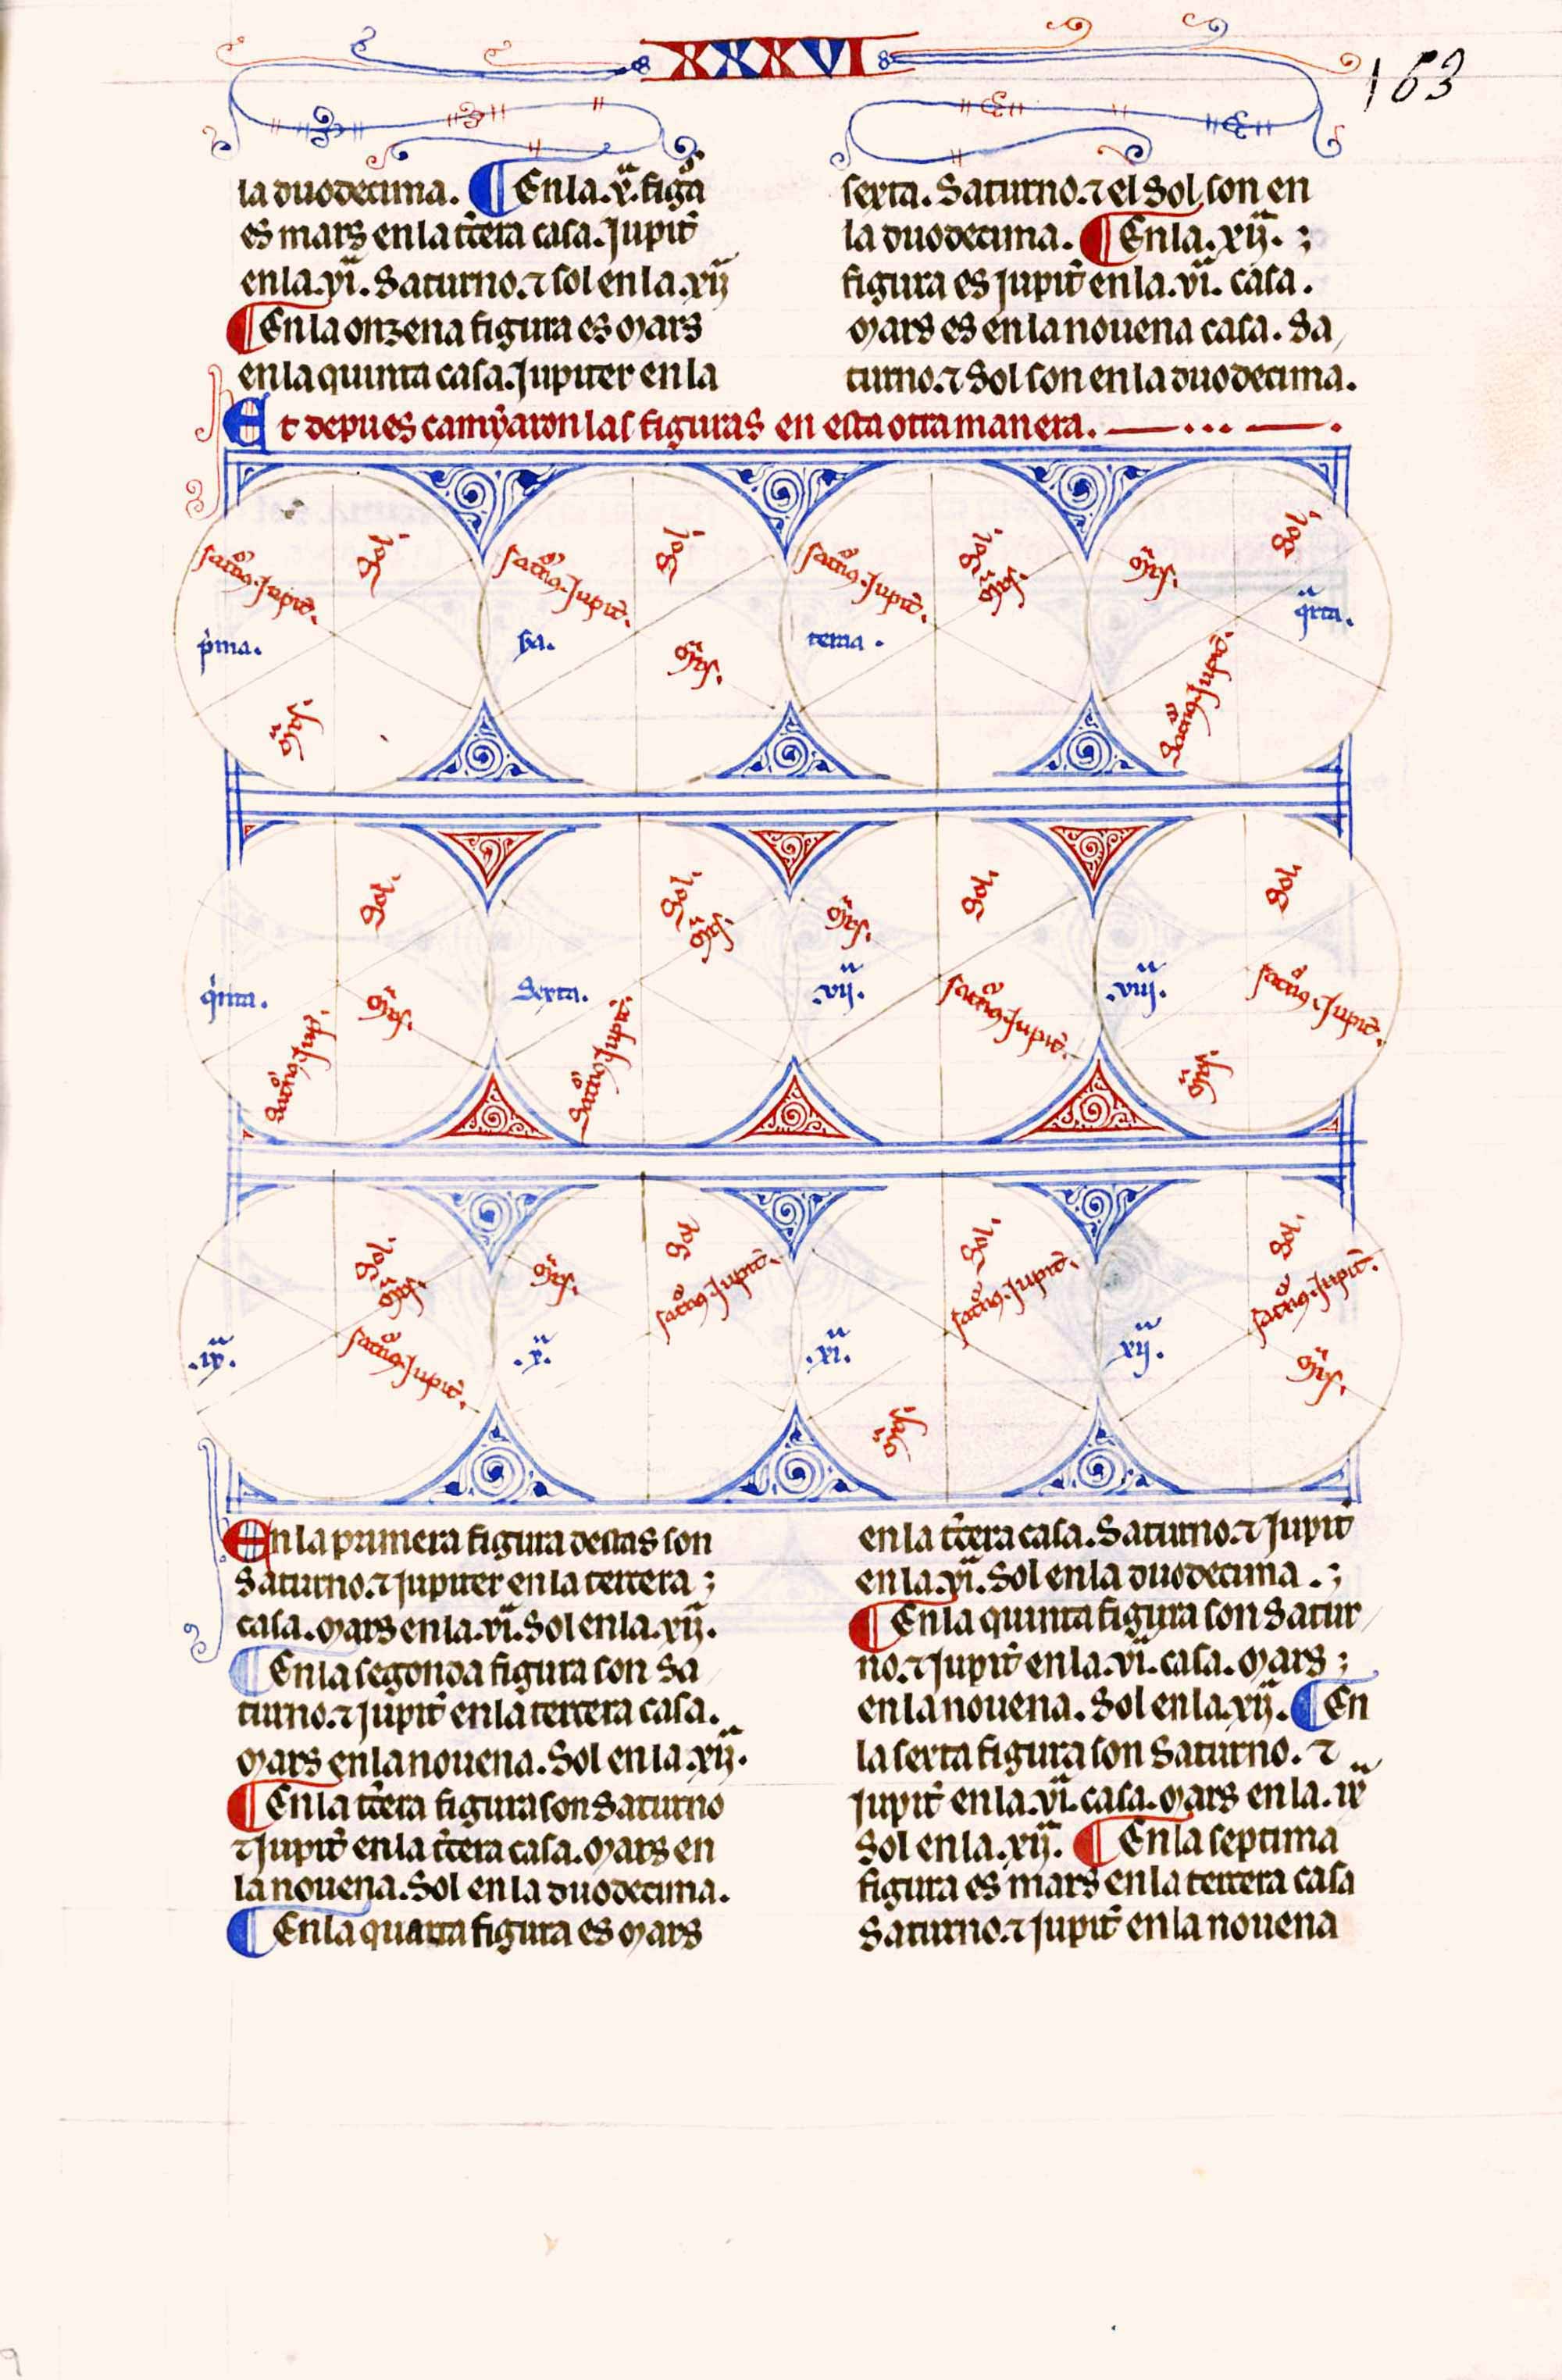 XXXVI
163
la duodecima. ¶ En la .xª. figͣa
es mars en la t̃cera casa. Jupit̃
en la .vi.ª Saturno. ⁊ sol en la .xijª
¶ En la onzena figura es mars
en la quinta casa. Jupiter en la
sexta. Saturno. ⁊ el Sol son en
la duodecima. ¶ En la .xijª. ;
figura es jupit̃ en la .viª. casa.
mars es en la nouena casa. Sa
turno. ⁊ Sol son en la duodecima.
Et depues camyaron las figuras en esta otra manera.
satũo. Jupit̃.
Sol.
p̃ma.
mr̃s.
satũo. Jupit̃.
Sol.
ijª.
mr̃s.
satũo. Jupit̃.
Sol.
mr̃s.
tercia.
mr̃s.
Sol.
q̃rta.
Satũo. Jupit̃.
Sol.
q̃inta.
mr̃s.
Satũo. Jup̃.
Sol.
mr̃s.
Sexta.
Satũo. Jupit̃.
mr̃s.
Sol.
.vijª.
satũo. Jupit̃.
Sol.
.viijª.
satũo. Jupit̃.
mr̃s.
Sol.
mr̃s.
.ixª.
satũo. Jupit̃.
mr̃s.
Sol
satũo. Jupit̃.
.xª.
Sol.
satũo. Jupit̃.
.xiª.
mr̃s.
Sol.
satũo. Jupit̃.
xijª.
mr̃s.
En la primera figura destas son
Saturno. ⁊ jupiter en la tercera ;
casa. mars en la .viª. Sol en la .xijª.
¶ En la segonda figura son Sa
turno. ⁊ jupit̃ en la tercera casa.
mars en la nouena. Sol en la .xijª.
¶ En la t̃cera figura son Saturno
⁊ Jupit̃ en la t̃cera casa. mars en
la nouena. Sol en la duodecima.
¶ En la quarta figura es mars
en la t̃cera casa. Saturno. ⁊ Jupit̃
en la .viª. Sol en la duodecima. ;
¶ En la quinta figura son Satur
no. ⁊ jupit̃ en la .viª. casa. mars ;
en la nouena. Sol en la .xijª. ¶ En
la sexta figura son Saturno. ⁊
jupit̃ en la .viª. casa. mars en la .ixª
Sol en la .xijª. ¶ En la septima
figura es mars en la tercera casa
Saturno. ⁊ jupit̃ en la nouena